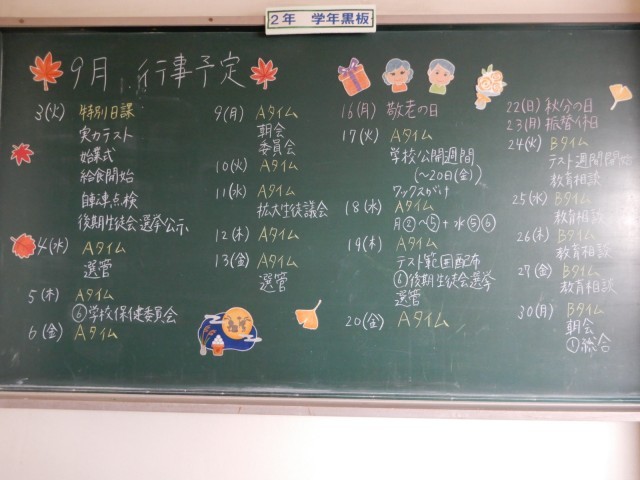 2年 学年黒板
9月 行事予定
3(火) 特別日課
実力テスト
始業式
給食開始
自転車点検
後期生徒会選挙公示
4(水) Aタイム
選管
5(木) Aタイム
⑥学校保健委員会
6(金) Aタイム
9(月) Aタイム
朝会
委員会
10(火) Aタイム
11(水) Aタイム
拡大生徒議会
12(木) Aタイム
13(金) Aタイム
選管
16(月) 敬老の日
17(火) Aタイム
学校公開週間
(〜20日(金))
ワックスがけ
18(水) Aタイム
月②〜⑤+水⑤⑥
19(木) Aタイム
テスト範囲配布
⑥後期生徒会選挙
選管
20(金) Aタイム
22(日) 秋分の日
23(月) 振替休日
24(火) Bタイム
テスト週間開始
教育相談
25(水) Bタイム
教育相談
26(木) Bタイム
教育相談
27(金) Bタイム
教育相談
30(月) Bタイム
朝会
①総合